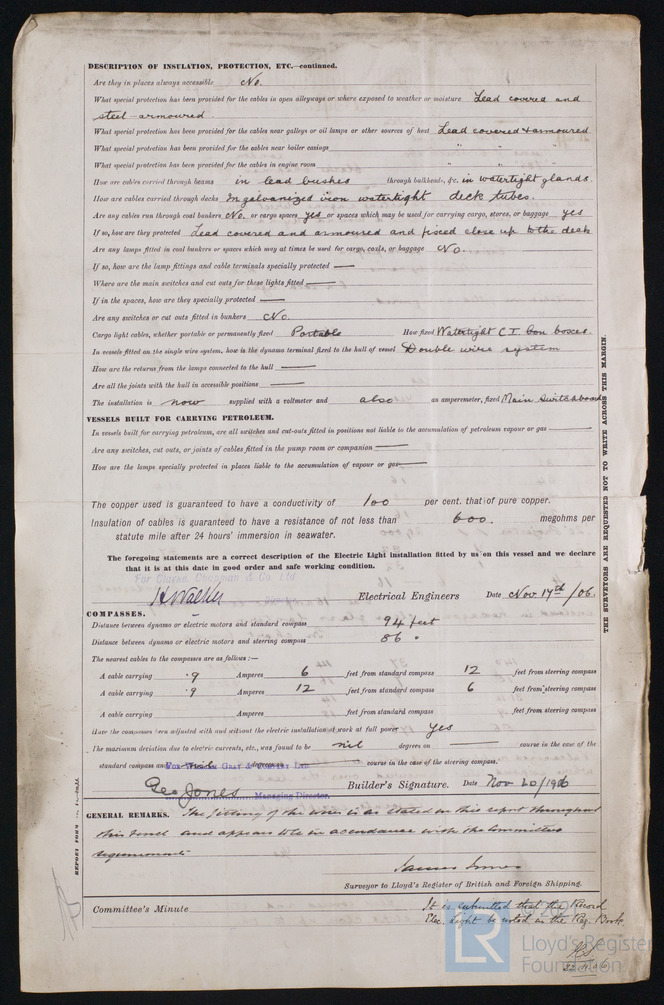 DESCRIPTION OF INSULATION, PROTECTION, ETC.—continued.
Are they in places always accessible No.
What special protection has been provided for the cables in open alleyways or where exposed to weather or moisture Lead covered and
steel armoured.
What special protection has been provided for the cables near galleys or oil lamps or other sources of heat Lead covered & armoured
What special protection has been provided for the cables near boiler casings " " "
What special protection has been provided for the cables in engine room " " "
How are cables carried through beams in lead bushes through bulkheads, &c. in watertight glands.
How are cables carried through decks In galvanized iron watertight deck tubes.
Are any cables run through coal bunkers No. or cargo spaces yes or spaces which may be used for carrying cargo, stores, or baggage yes
If so, how are they protected Lead covered and armoured and fixed close up to the deck
Are any lamps fitted in coal bunkers or spaces which may at times be used for cargo, coals, or baggage No.
If so, how are the lamp fittings and cable terminals specially protected —
Where are the main switches and cut outs for these lights fitted —
If in the spaces, how are they specially protected —
Are any switches or cut outs fitted in bunkers No.
Cargo light cables, whether portable or permanently fixed Portable How fixed Watertight C I Con boxes.
In vessels fitted on the single wire system, how is the dynamo terminal fixed to the hull of vessel Double wire system
How are the returns from the lamps connected to the hull —
Are all the joints with the hull in accessible positions —
The installation is now supplied with a voltmeter and also an amperemeter, fixed Main Switchboard
VESSELS BUILT FOR CARRYING PETROLEUM.
In vessels built for carrying petroleum, are all switches and cut-outs fitted in positions not liable to the accumulation of petroleum vapour or gas —
Are any switches, cut outs, or joints of cables fitted in the pump room or companion —
How are the lamps specially protected in places liable to the accumulation of vapour or gas —
The copper used is guaranteed to have a conductivity of 100 per cent. that of pure copper.
Insulation of cables is guaranteed to have a resistance of not less than 600. megohms per
statute mile after 24 hours' immersion in seawater.
The foregoing statements are a correct description of the Electric Light installation fitted by us on this vessel and we declare
that it is at this date in good order and safe working condition.
For Clarke, Chapman & Co. Ltd
H Walker Electrical Engineers Date Nov 17th /06.
COMPASSES.
Distance between dynamo or electric motors and standard compass 94 feet
Distance between dynamo or electric motors and steering compass 86 "
The nearest cables to the compasses are as follows:—
A cable carrying .9 Amperes 6 feet from standard compass 12 feet from steering compass
A cable carrying .9 Amperes 12 feet from standard compass 6 feet from steering compass
A cable carrying Amperes feet from standard compass feet from steering compass
Have the compasses been adjusted with and without the electric installation at work at full power yes
The maximum deviation due to electric currents, etc., was found to be nil degrees on — course in the case of the
standard compass and nil degrees on course in the case of the steering compass.
Geo Jones Managing Director. Builder's Signature. Date Nov 20/1906
GENERAL REMARKS. The fitting of the wire is as stated in this report throughout
this vessel and appears to be in accordance with the Committee's
requirements
James Innes
Surveyor to Lloyd's Register of British and Foreign Shipping.
Committee's Minute
It is submitted that the Record
Elec. Light be noted in the Reg. Book.
THE SURVEYORS ARE REQUESTED NOT TO WRITE ACROSS THIS MARGIN.
LR
Lloyd's Register
Foundation